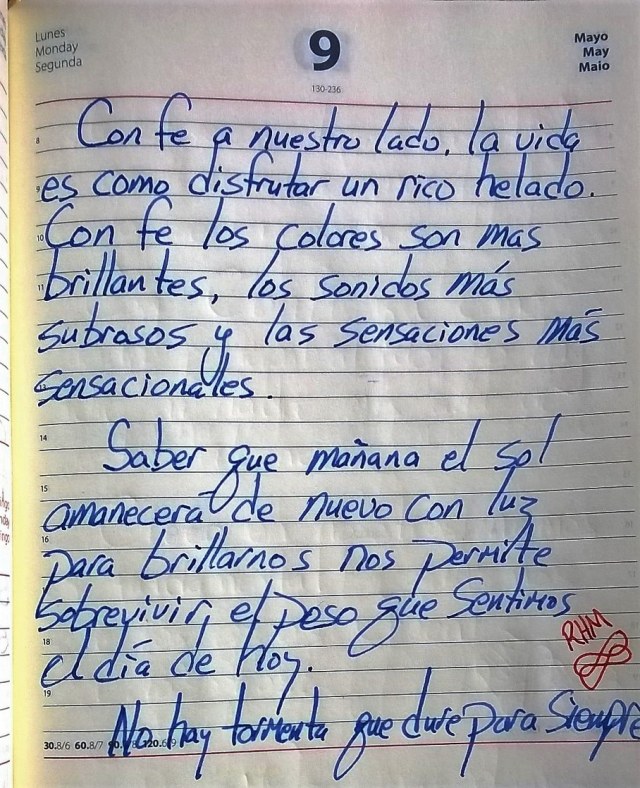 Lunes
Monday
Segunda
9
130-236
Mayo
May
Maio
8
Con fe a nuestro lado, la vida
9
es como disfrutar un rico helado.
10
Con fe los colores son mas
11
brillantes, los sonidos más
subrosos y las sensaciones más
sensacionales.
14
Saber que mañana el sol
15
amanecerá de nuevo con luz
16
para brillarnos nos permite
sobrevivir, el peso que sentimos
18
el día de hoy.
RHM
19
No hay tormenta que dure para siempre
30.8/6 60.8/7